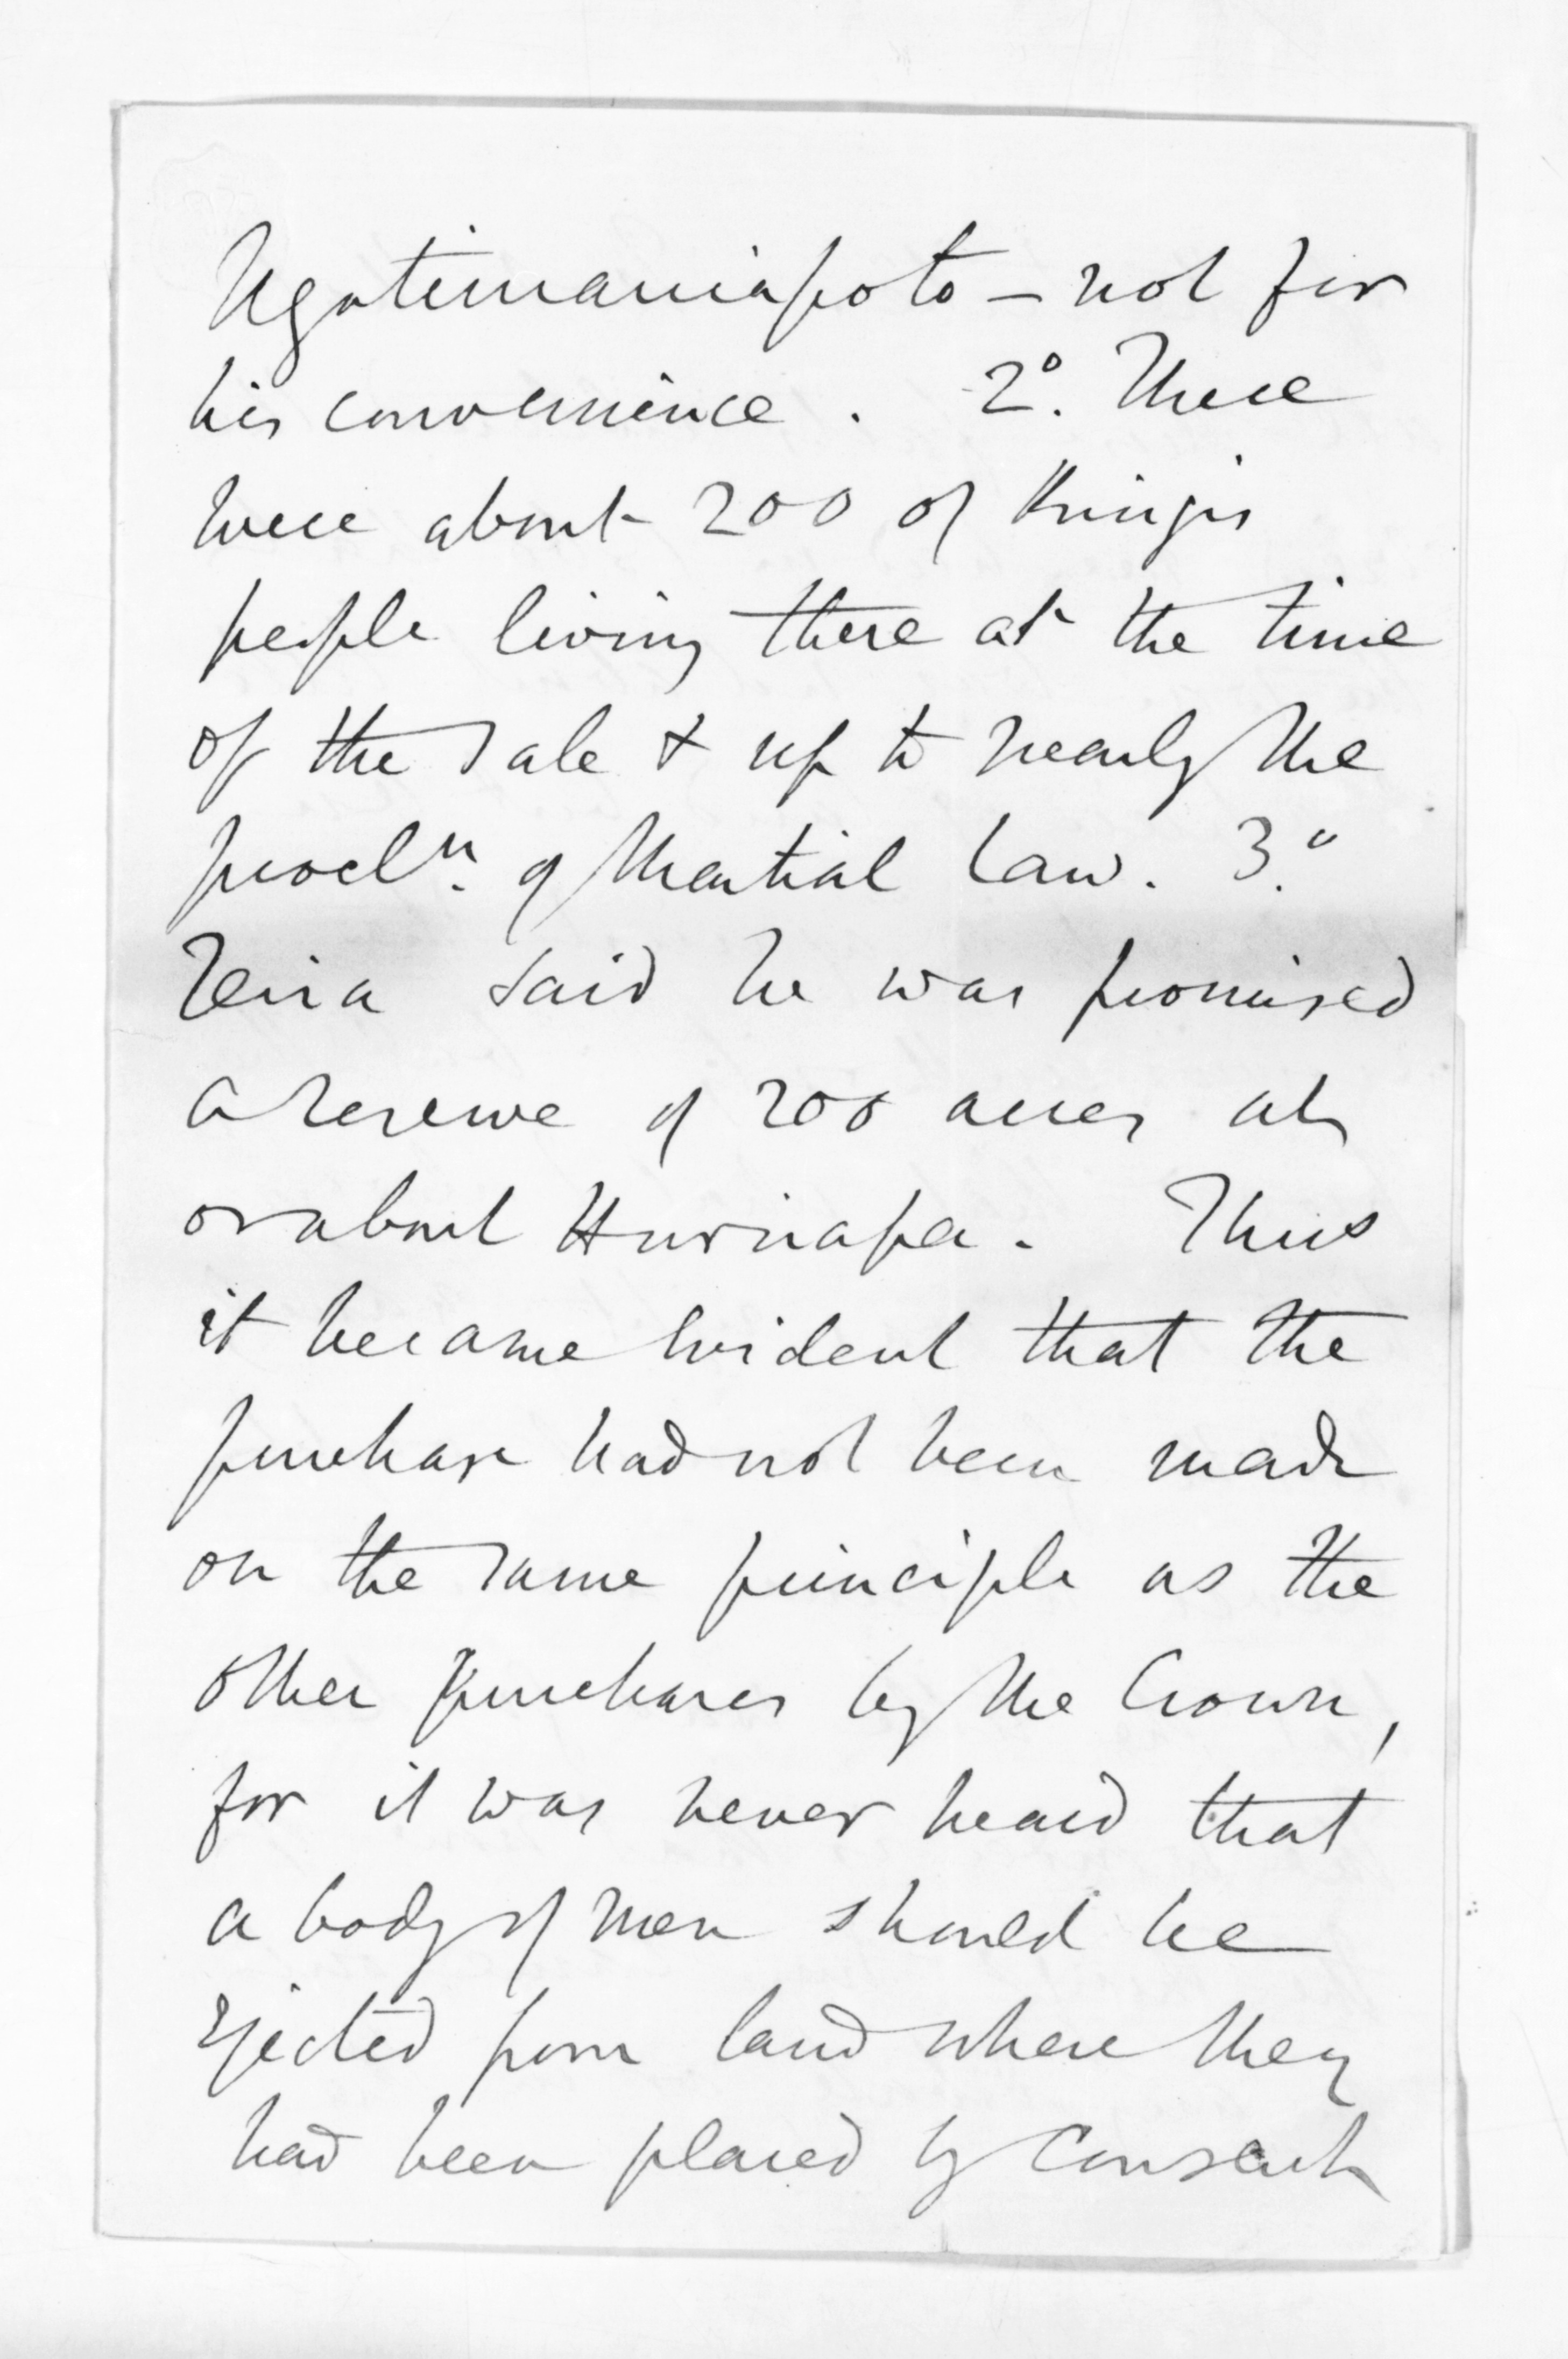 Ngatimaniapoto – not for
his convenience. 2°. There
were about 200 of Kingis
people living there at the time
of the sale & up to nearly the
procln. of Martial Law. 3.°
Teira said he was promised
a reserve of 200 acres at
or about Huriapa. Thus
it became evident that the
purchase had not been made
on the same principle as the
other purchases by the Crown,
for it was never heard that
a body of men should be
ejected from land where they
had been placed by consent